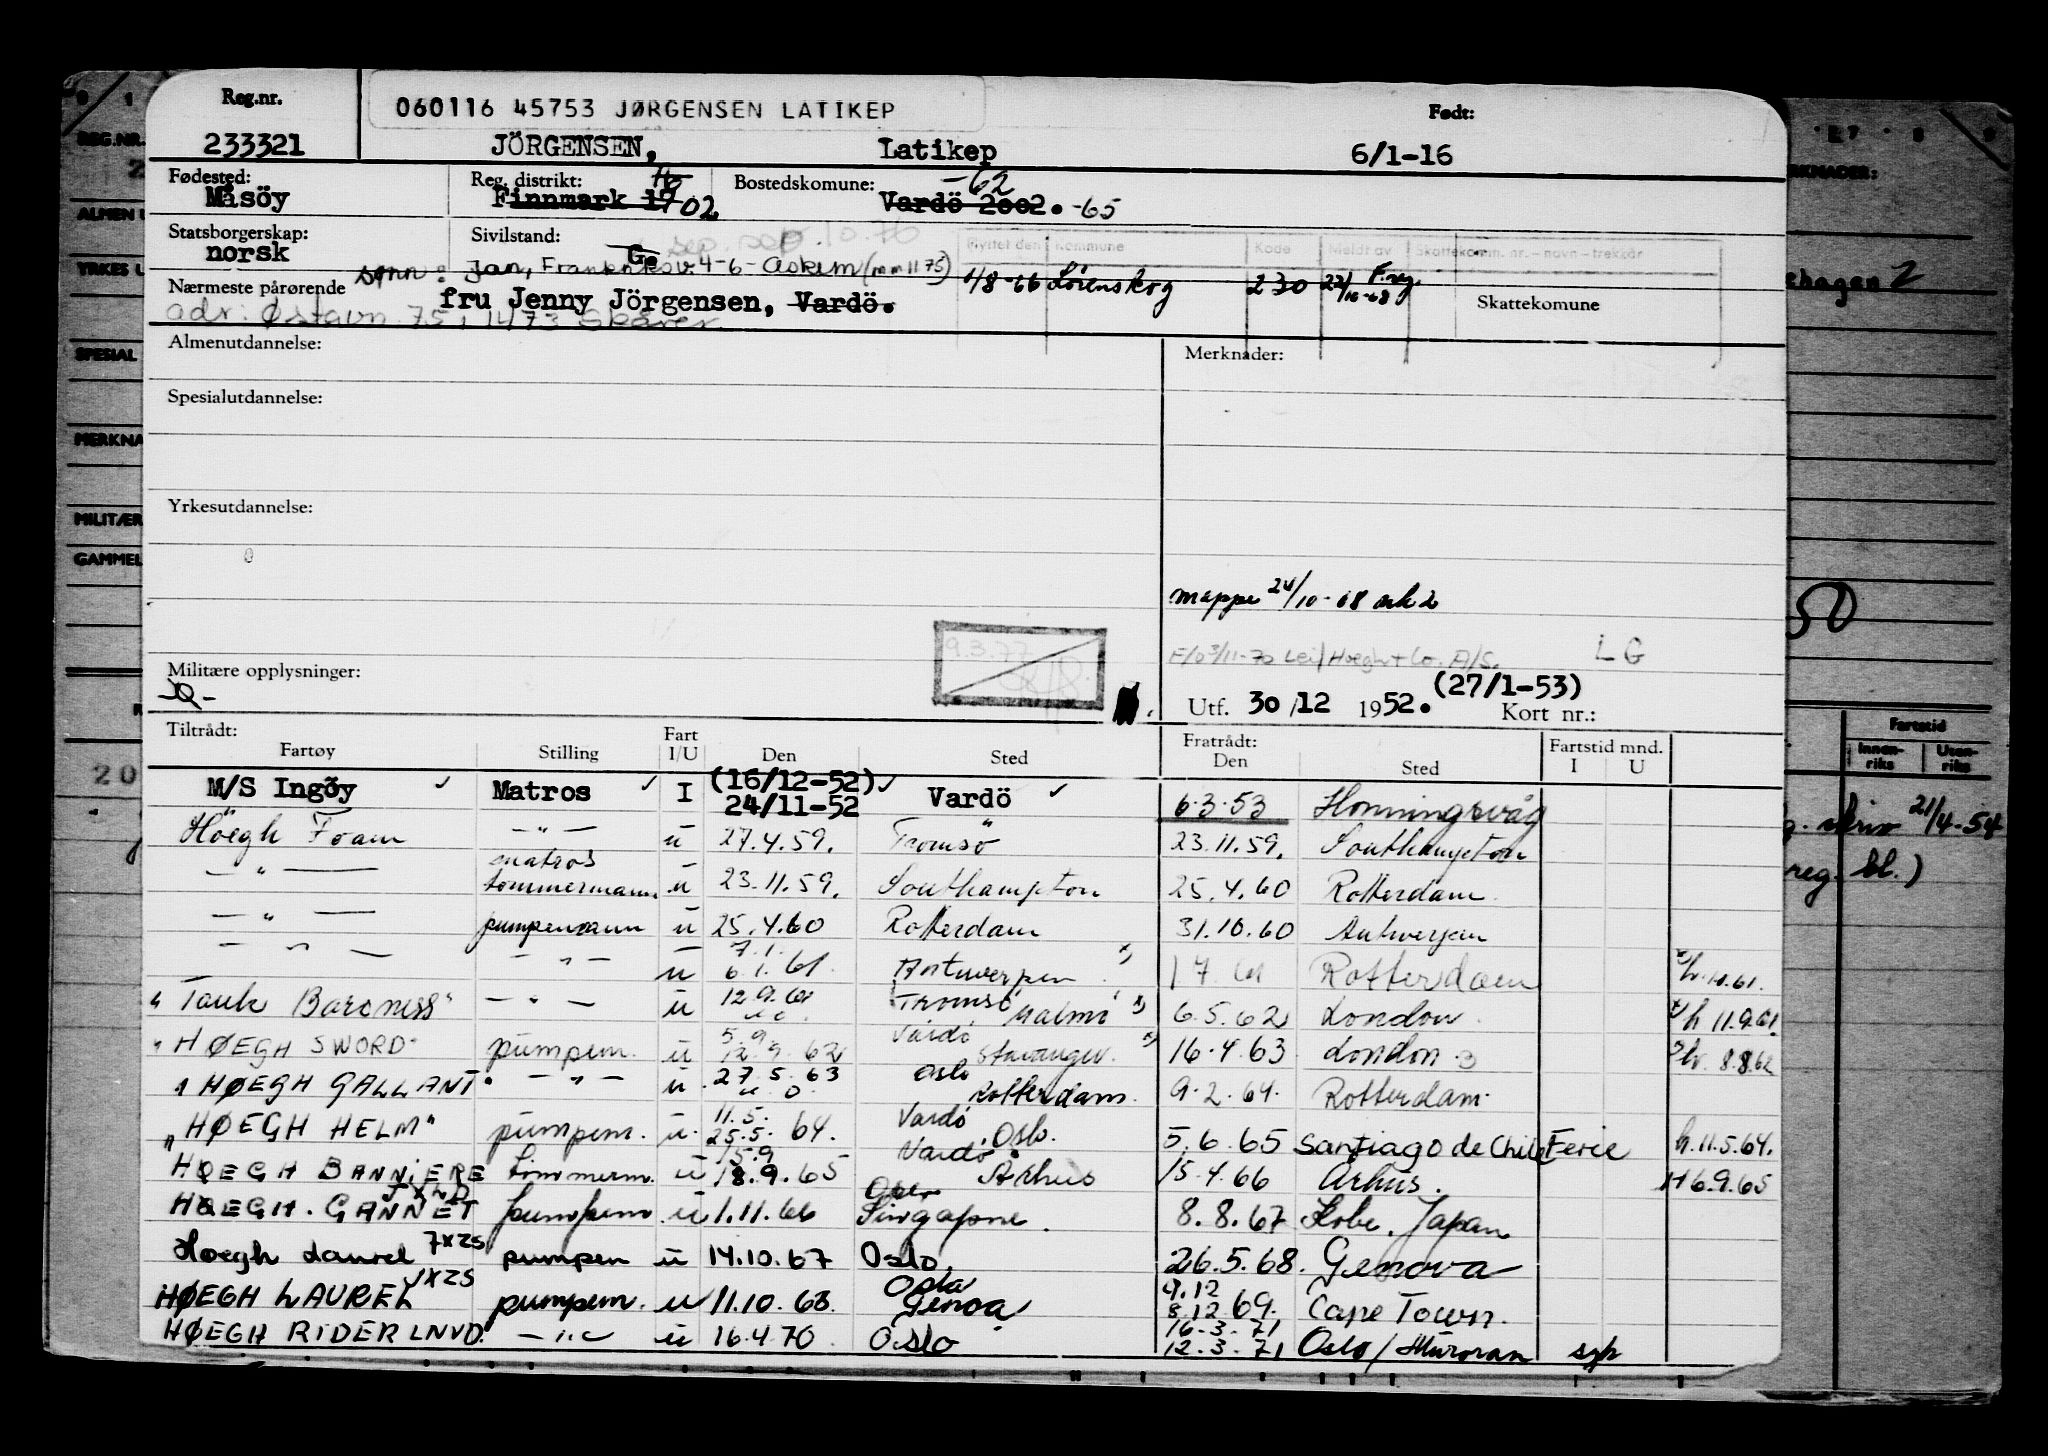 Reg.nr.
060116 45753 JØRGENSEN LATIKEP
Født:
233321 JÖRGENSEN, Latikep 6/1-16
Fødested: Reg. distrikt: Bostedskomune: -62
Måsöy Finnmark 19 02 Vardö 2002. -65
Statsborgerskap: Sivilstand:
norsk
Flyttet den Kommune Kode Meldt av Skattekomm. nr. – navn – trekkår
sønn: Jan, 4-6- Askim
1/8-66 Lørenskog 230 22/10-68 F.reg.
Nærmeste pårørende
fru Jenny Jörgensen, Vardö.
Skattekomune
adr: Østavn. 75, 1473 Skårer
Almenutdannelse:
Merknader:
Spesialutdannelse:
Yrkesutdannelse:
mappe 24/10-68 ark 2
9.3.77
LG
Militære opplysninger:
(27/1-53)
Utf. 30/12 1952. Kort nr.:
Tiltrådt: Fratrådt: Fartstid mnd.
Fartøy Stilling Fart I/U Den Sted Den Sted I U
M/S Ingöy Matros I (16/12-52) 24/11-52 Vardö 6.3.53 Honningsvåg
Höegh Foam — " — u 27.4.59. Tromsö 23.11.59. Southampton
— " — matros tömmermann u 23.11.59. Southampton 25.4.60 Rotterdam
— " — pumpemann u 25.4.60 Rotterdam 31.10.60 Antwerpen
— " — — " — u 7.1. 6.1.61 Antwerpen 1 7 61 Rotterdam
"Tank Baroness" — " — u 12.9.61 Tromsö Malmö 6.5.62 London h 11.9.61.
"HØEGH SWORD" pumpem. u 5.9. 12.9.62 Vardö Stavanger 16.4.63 London 8.8.62
"HØEGH GALLANT" — " — u 27.5.63 Oslo Rotterdam. 9.2.64. Rotterdam.
"HØEGH HELM" pumpem. u 11.5. 25.5.64. Vardö Oslo. 5.6.65 Santiago de Chile Ferie h.11.5.64.
HØEGH BANNIERE tömmerm. u 15.9 18.9.65 Vardö Århus 15.4.66 Århus. H 6.9.65
HØEGH. GANNET pumpem u 1.11.66 Oslo Singapore. 8.8.67 Kobe, Japan
Høegh Laurel 7XZS pumpem u 14.10.67 Oslo. 26.5.68. Genova
HØEGH LAUREL JXZS pumpem. u 11.10.68. Oslo Genoa 9.12 8.12.69. Cape Town.
HØEGH RIDER LNVD. — " — u 16.4.70. Oslo 16.3.71 12.3.71 Oslo / Muroran
REG.NR.
YRKES
SPESIAL
MERKNA
MILITÆR
GAMMEL
20
Fartstid
Innenriks
Utenriks
21/4-54
reg. bl.)